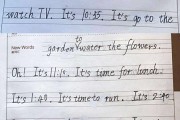 watch TV. It's 10:35. It's go to the
New Words
garden to water the flowers.
Oh! It's 11:15. It's time for lunch.
It's 1:40. It's time to run. It's 2:40